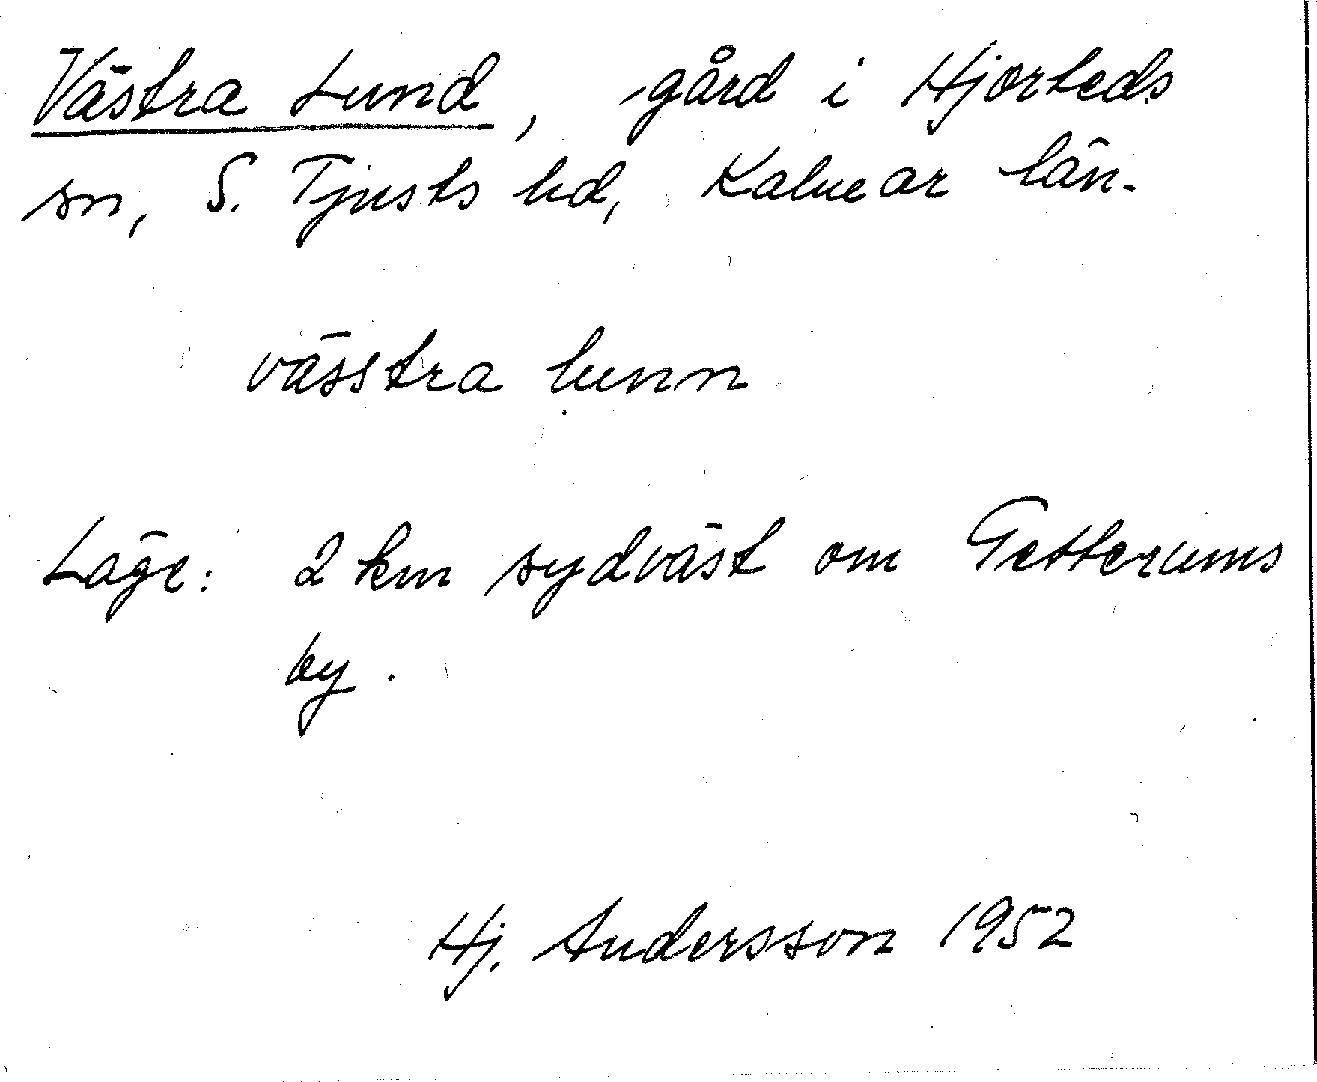 Västra Lund, gård i Hjorteds
sn, S. Tjusts hd, Kalmar län.
vässtra lunn
Läge: 2 km sydväst om Totterums
by.
Hj. Andersson 1952